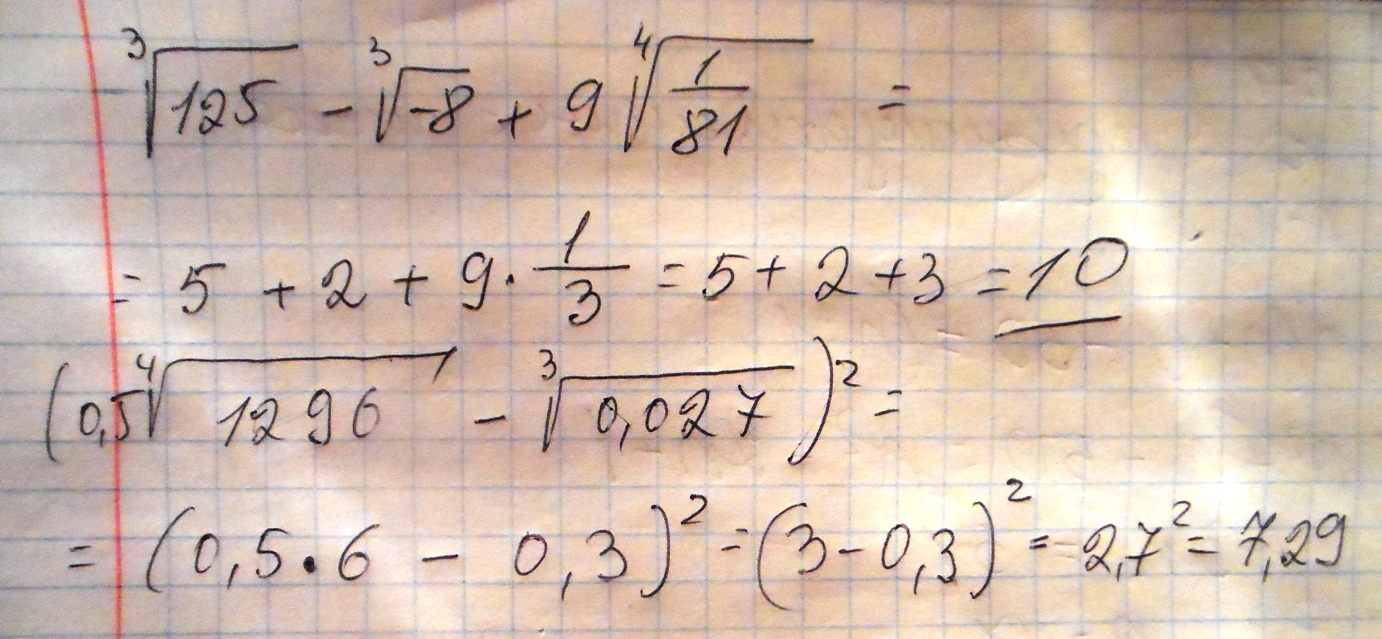 ∛125 - ∛-8 + 9 ∜(1/81) =
= 5 + 2 + 9 · 1/3 = 5 + 2 + 3 = 10
(0,5∜1296 - ∛0,027)² =
= (0,5 · 6 - 0,3)² = (3 - 0,3)² = 2,7² = 7,29